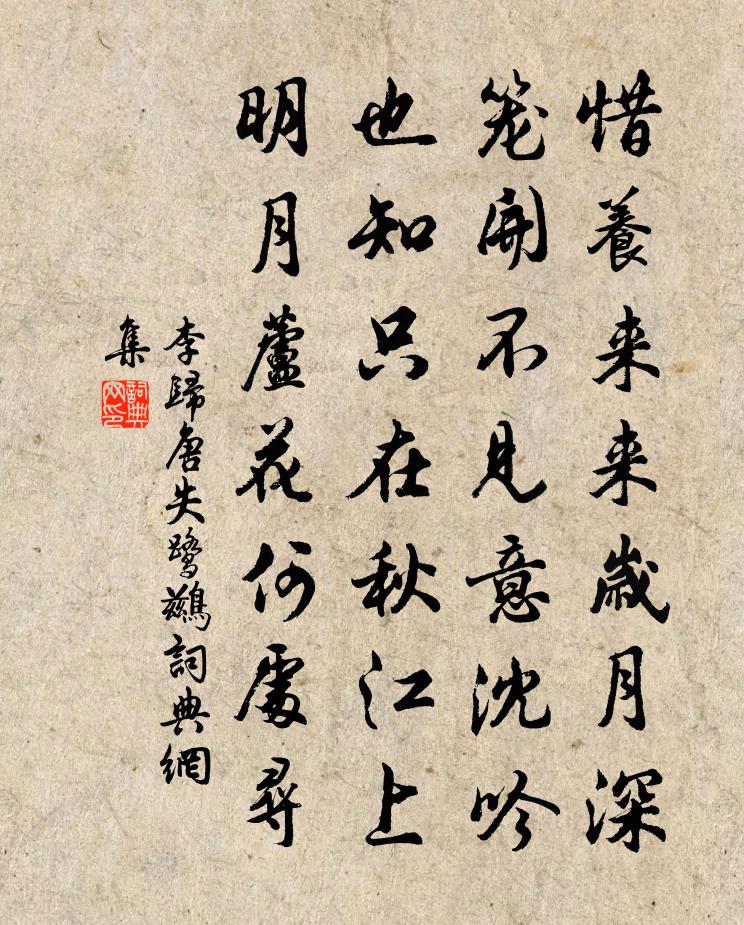 惜養来来歲月深
笼開不見意沈吟
也知只在秋江上
明月蘆花何處尋
李歸唐失鷺鷀詞典網
集
詞典
网印